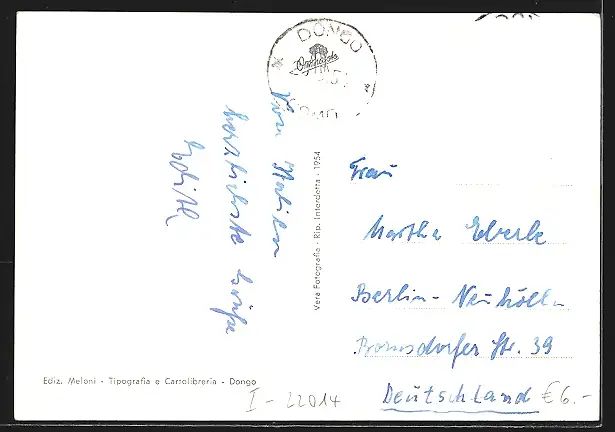 DONGO
Von Italien
herzlichste Grüße
Edith
Vera Fotografia - Rip. Interdetta - 1954
Frau
Martha Eberle
Berlin-Neukölln
Bornsdorfer Str. 39
Deutschland
€ 6.-
Ediz. Meloni - Tipografia e Cartolibreria - Dongo
I-22014